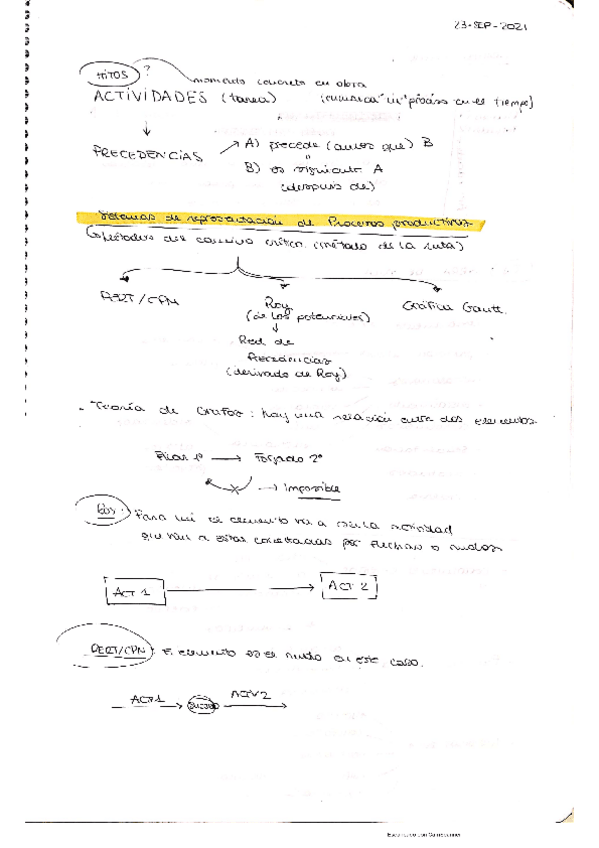 23-SEP-2021
HITOS ? momento concreto en obra
ACTIVIDADES (tarea)
PRECEDENCIAS A) precede (antes que) B
B) es siguiente A
(después de)
Sistemas de representación de Procesos productivos
Métodos del camino crítico (método de la ruta)
PERT/CPM Roy Gráfica Gantt.
(de los potenciales)
Red de
Precedencias
(derivado de Roy)
- Teoría de Grafos: hay una relación entre dos elementos
Pilar 1º → Forjado 2º
→ Imposible
Para mi el elemento va a ser la actividad
que van a estar conectadas por flechas o nudos
ACT 1 → ACT 2
PERT/CPM: El elemento es el nudo en este caso.
ACT 1 → → ACTV 2
Escaneado con CamScanner